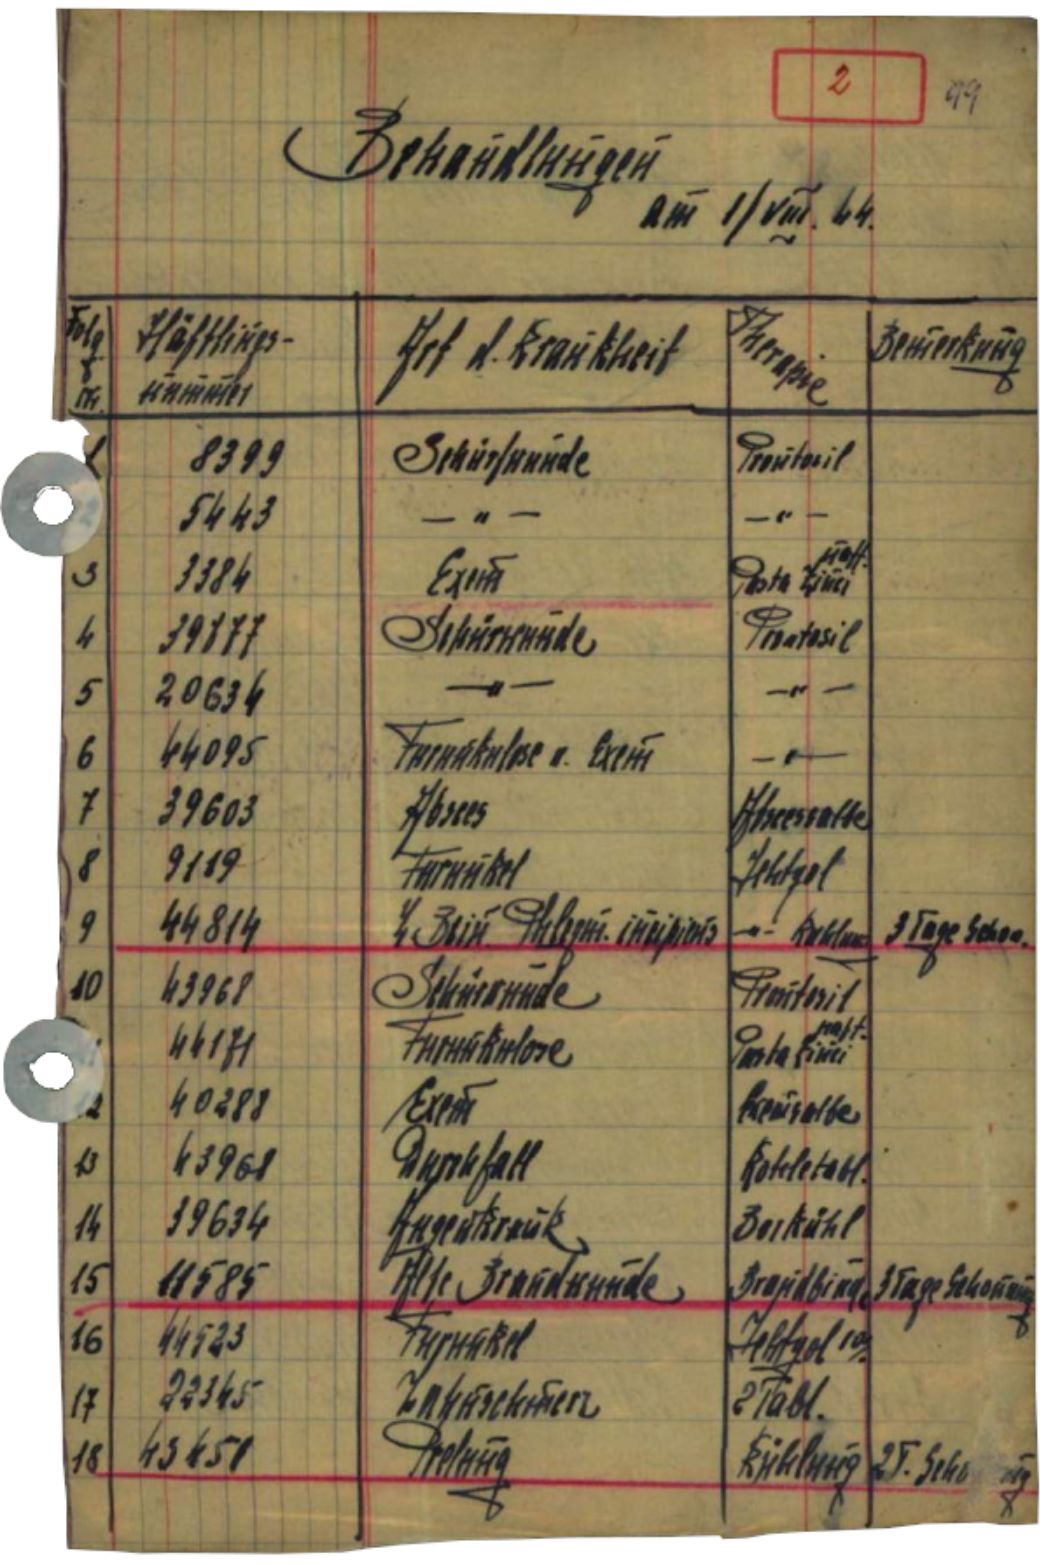 2 99
Behandlungen
am 1/VIII. 44.
Folg Nr. Häftlings-nummer Art d. Krankheit Therapie Bemerkung
1 8399 Schürfwunde Prontosil
5443 — " — — " —
3 3384 Exem Pasta Zinci
4 39177 Schürwunde Prontosil
5 20634 — " — — " —
6 44095 Furunkulose u. Exem — " —
7 39603 Absces Abscessalbe
8 9119 Furunkel Ichtyol
9 44814 Phlegm. incipiens — " — 3 Tage Schon.
10 43968 Schürwunde Prontosil
44171 Furunkulose Pasta Zinci
40288 Exem Exemsalbe
13 43968 Durchfall Kohletabl.
14 39634 Augenkrank
15 11585 Alte Brandwunde Brandbinde 3 Tage Schonung
16 44523 Furunkel Ichtyol
17 22345 Zahnschmerz 2 Tabl.
18 43458 Prelung Kühlung 2 T. Schonung